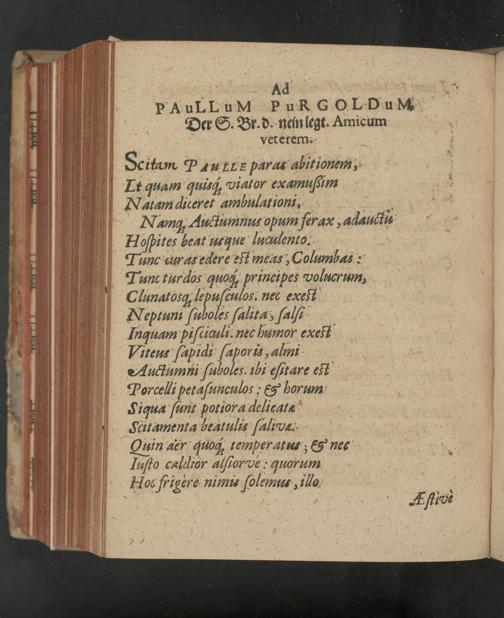 Ad
PAuLLuM PuRGOLDuM,
Der S. Br. d. nein legt. Amicum
veterem.
Scitam PAULLE paras abitionem,
Et quam quisq́; viator examußim
Natam diceret ambulationi,
Namq́; Auctumnus opum ferax, adauctu
Hoſpites beat usque luculento.
Tunc curas edere est meas, Columbas:
Tunc turdos quoq́; principes volucrum,
Clunatosq́; lepuſculos. nec exest
Neptuni ſuboles ſalita, ſalſi
Inquam piſciculi. nec humor exest
Viteus ſapidi ſaporis, almi
Auctumni ſuboles. ibi eſitare est
Porcelli petaſunculos: & horum
Siqua ſunt potiora delicatæ
Scitamenta beatulis ſalivæ.
Quin aër quoq́; temperatus, & nec
Iuſto caldior alſiorve: quorum
Hoc frigère nimis ſolemus, illo
Æſtivè